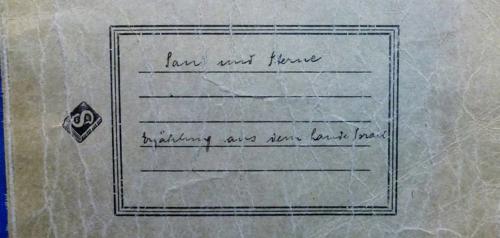 Sand und Sterne
Erzählung aus dem Lande Israel